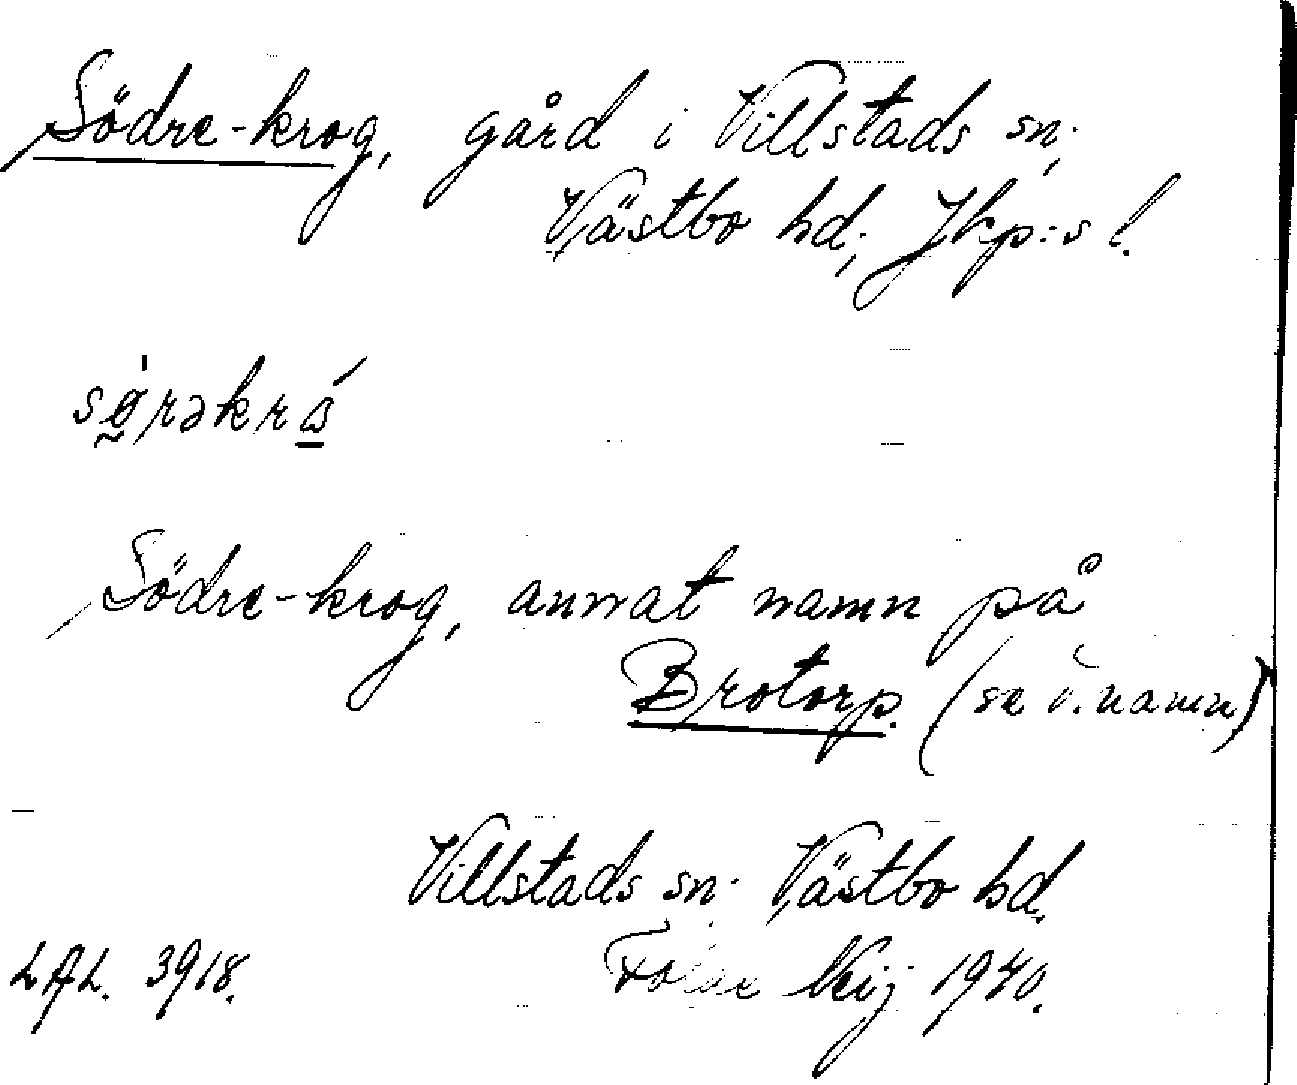 Södre-krog, gård i Villstads sn;
Västbo hd; Jkp:s l.
Södre-krog, annat namn på
Brotorp. (se ö. namn)
Villstads sn. Västbo hd.
LAL. 3918. 1940.